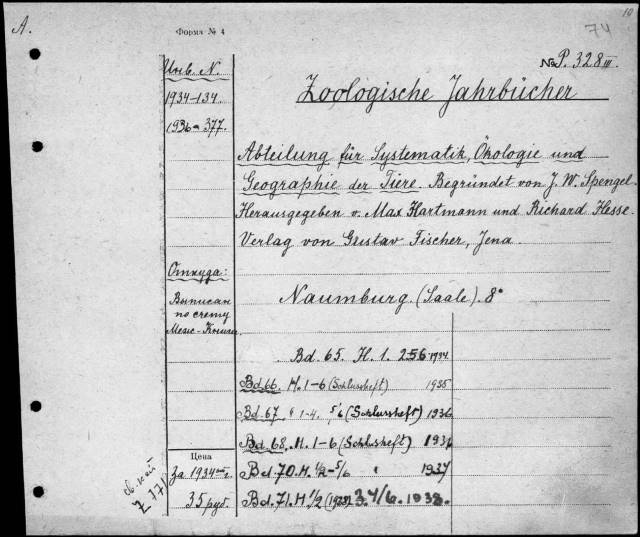 A.
10
74
Форма № 4
№ P. 328 III
Инв. N.
1934-134.
1936-377.
Zoologische Jahrbücher
Abteilung für Systematik, Ökologie und
Geographie der Tiere. Begründet von J. W. Spengel
Herausgegeben v. Max Hartmann und Richard Hesse.
Verlag von Gustav Fischer, Jena.
Откуда:
Выписан
по счету
Naumburg (Saale). 8°
Bd. 65. H. 1. 256 1934
Bd. 66. H. 1-6 (Schlussheft) 1935
Bd. 67 " 1-4. 5/6 (Schlussheft) 1936
Bd. 68. H. 1-6 (Schlusheft) 1936
Цена
За 1934
Bd. 70. H. 1/2-5/6 " 1937
35 руб.
Bd. 71. H 1/2 3/4/6. 1938.
Z 171